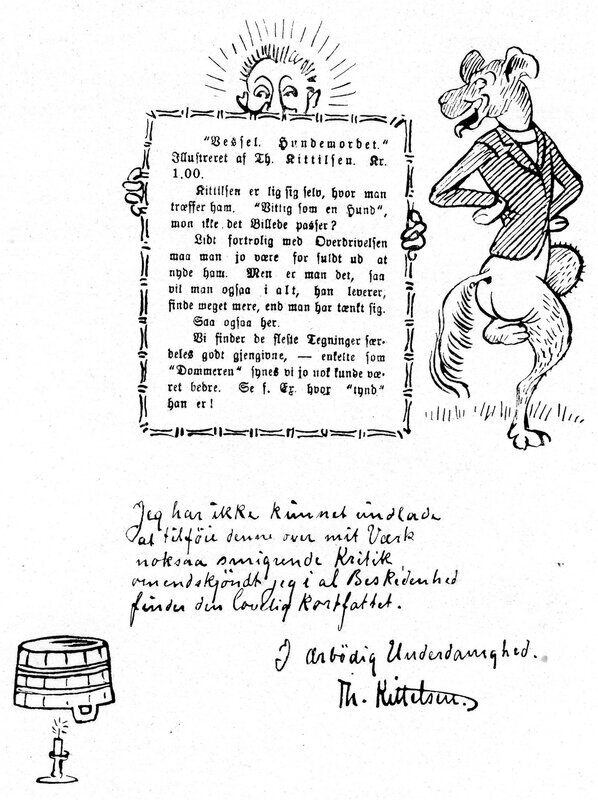 "Vessel. Hundemordet."
Illustreret af Th. Kittilsen. Kr.
1,00.
Kittilsen er lig sig selv, hvor man
træffer ham. "Vittig som en Hund",
mon ikke det Billede passer?
Lidt fortrolig med Overdrivelsen
maa man jo være for fuldt ud at
nyde ham. Men er man det, saa
vil man ogsaa i alt, han leverer,
finde meget mere, end man har tænkt sig.
Saa ogsaa her.
Vi finder de fleste Tegninger sær-
deles godt gjengivne, — enkelte som
"Dommeren" synes vi jo nok kunde væ-
ret bedre. Se f. Ex. hvor "tynd"
han er!
Jeg har ikke kunnet undlade
at tilföie denne over mit Værk
noksaa smigrende Kritik
omendskjöndt jeg i al Beskedenhed
finder den lovlig kortfattet.
I ærbödig Underdanighed.
Th. Kittelsen.